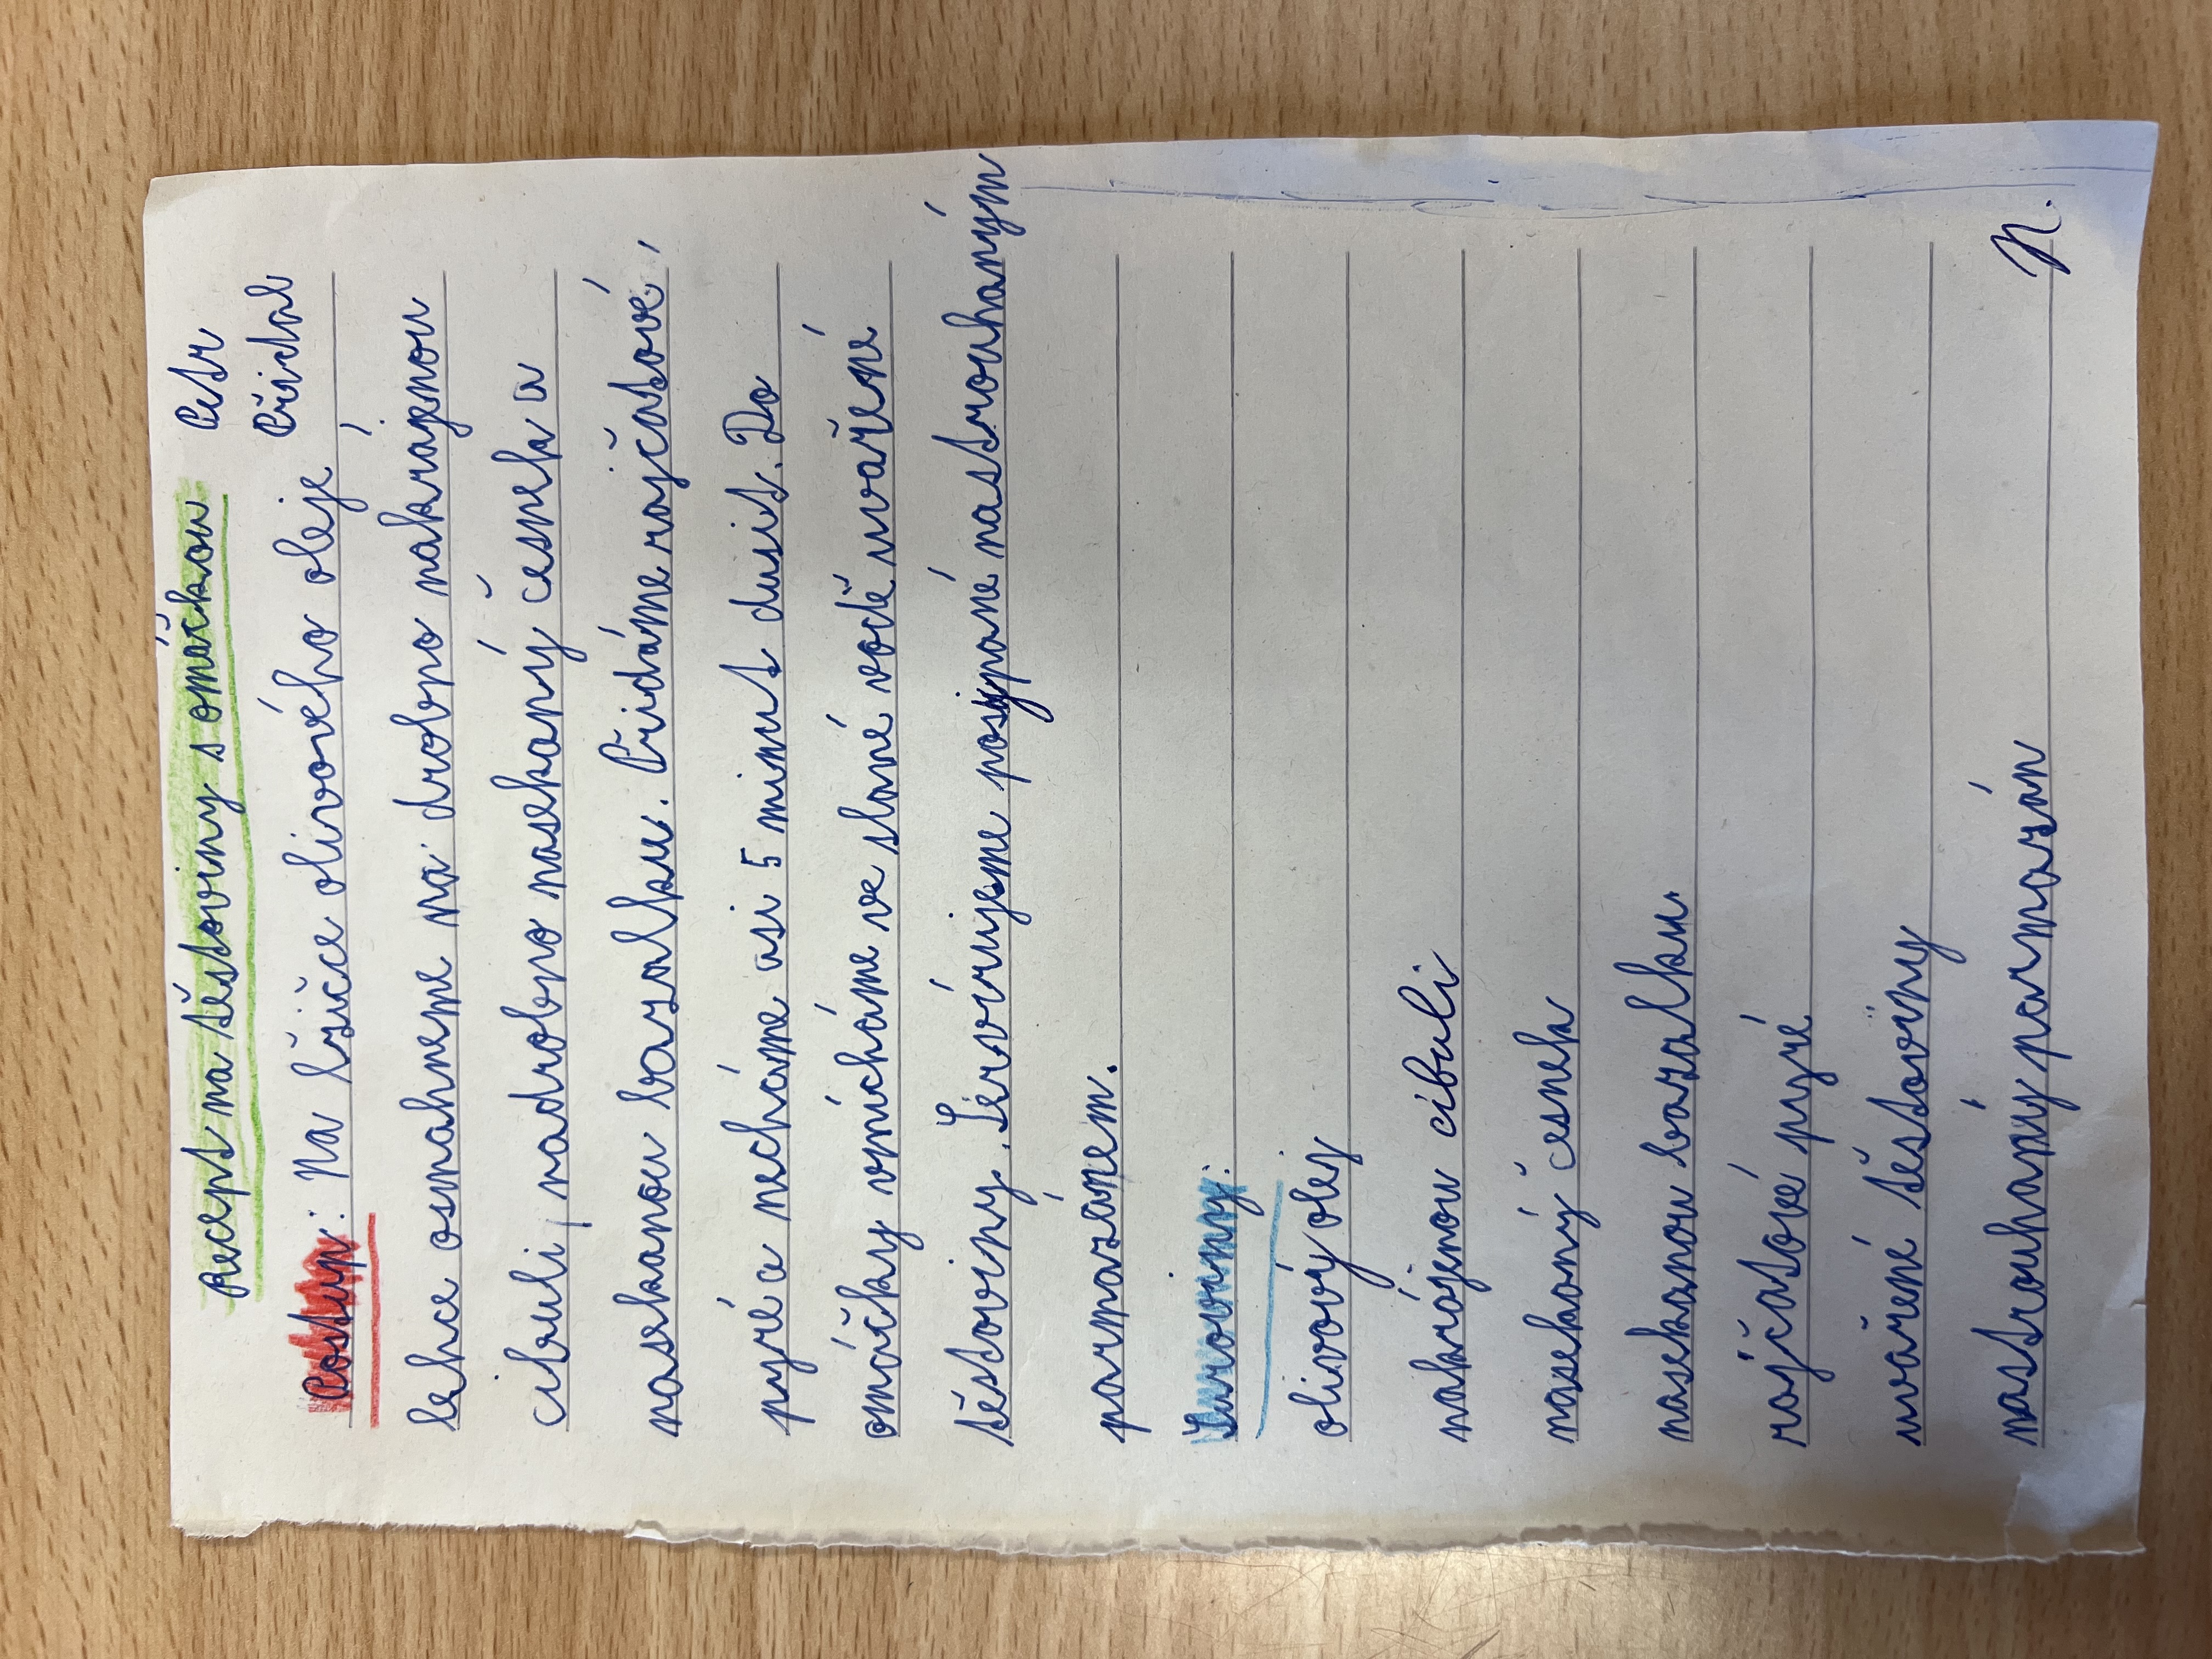 recept na těstoviny s omáčkou Petr
Přidal
Postup: Na lžíce olivového oleje
lehce osmahneme na drobno nakrájenou
cibuli, nadrobno nasekaný česneka
nasekanou bazalku. Přidáme rajčatové,
pyré a necháme asi 5 minut dusit. Do
omáčky vmícháme ve slané vodě uvařené
těstoviny. Servírujeme posypané nastrouhaným
parmazánem.
Suroviny:
olivový olej
nakrájenou cibuli
nasekaný česnek
nasekanou bazalku.
rajčatové pyré
uvařené těstoviny
nastrouhaný parmazán N.